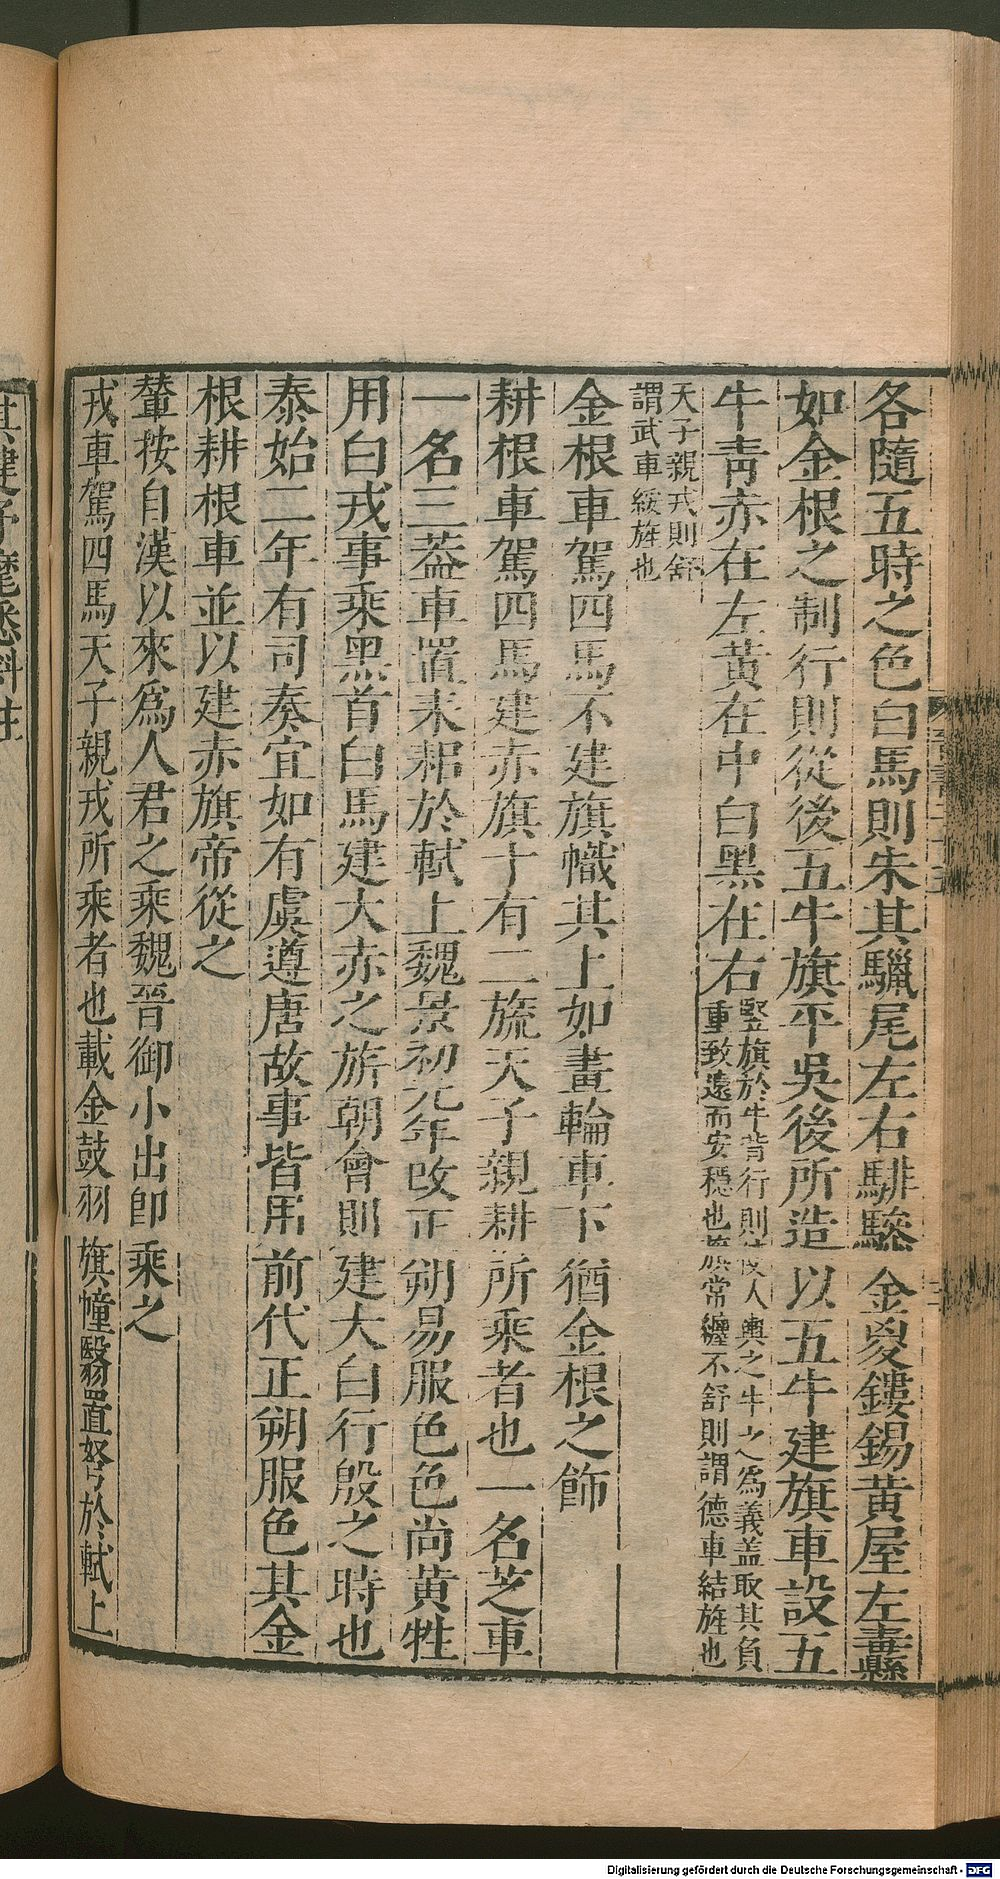 各隨五時之色白馬則朱其鬣尾左右騑驂金㚇鏤鍚黃屋左纛
如金根之制行則從後五牛旗平吳後所造以五牛建旗車設五
牛青赤在左黃在中白黑在右
豎旗於牛背行則使人輿之牛之為義蓋取其負
重致遠而安穩也旗常纏不舒則謂德車結旌也
天子親戎則舒
謂武車綏旌也
金根車駕四馬不建旗幟其上如畫輪車下猶金根之飾
耕根車駕四馬建赤旗十有二旒天子親耕所乘者也一名芝車
一名三蓋車置耒耜於軾上魏景初元年改正朔易服色色尚黃牲
用白戎事乘黑首白馬建大赤之旂朝會則建大白行殷之時也
泰始二年有司奏宜如有虞遵唐故事皆用前代正朔服色其金
根耕根車並以建赤旗帝從之
輦按自漢以來為人君之乘魏晉御小出卽乘之
戎車駕四馬天子親戎所乘者也載金鼓羽旗幢翳置弩於軾上
其建矛麾悉斜注
Digitalisierung gefördert durch die Deutsche Forschungsgemeinschaft - DFG